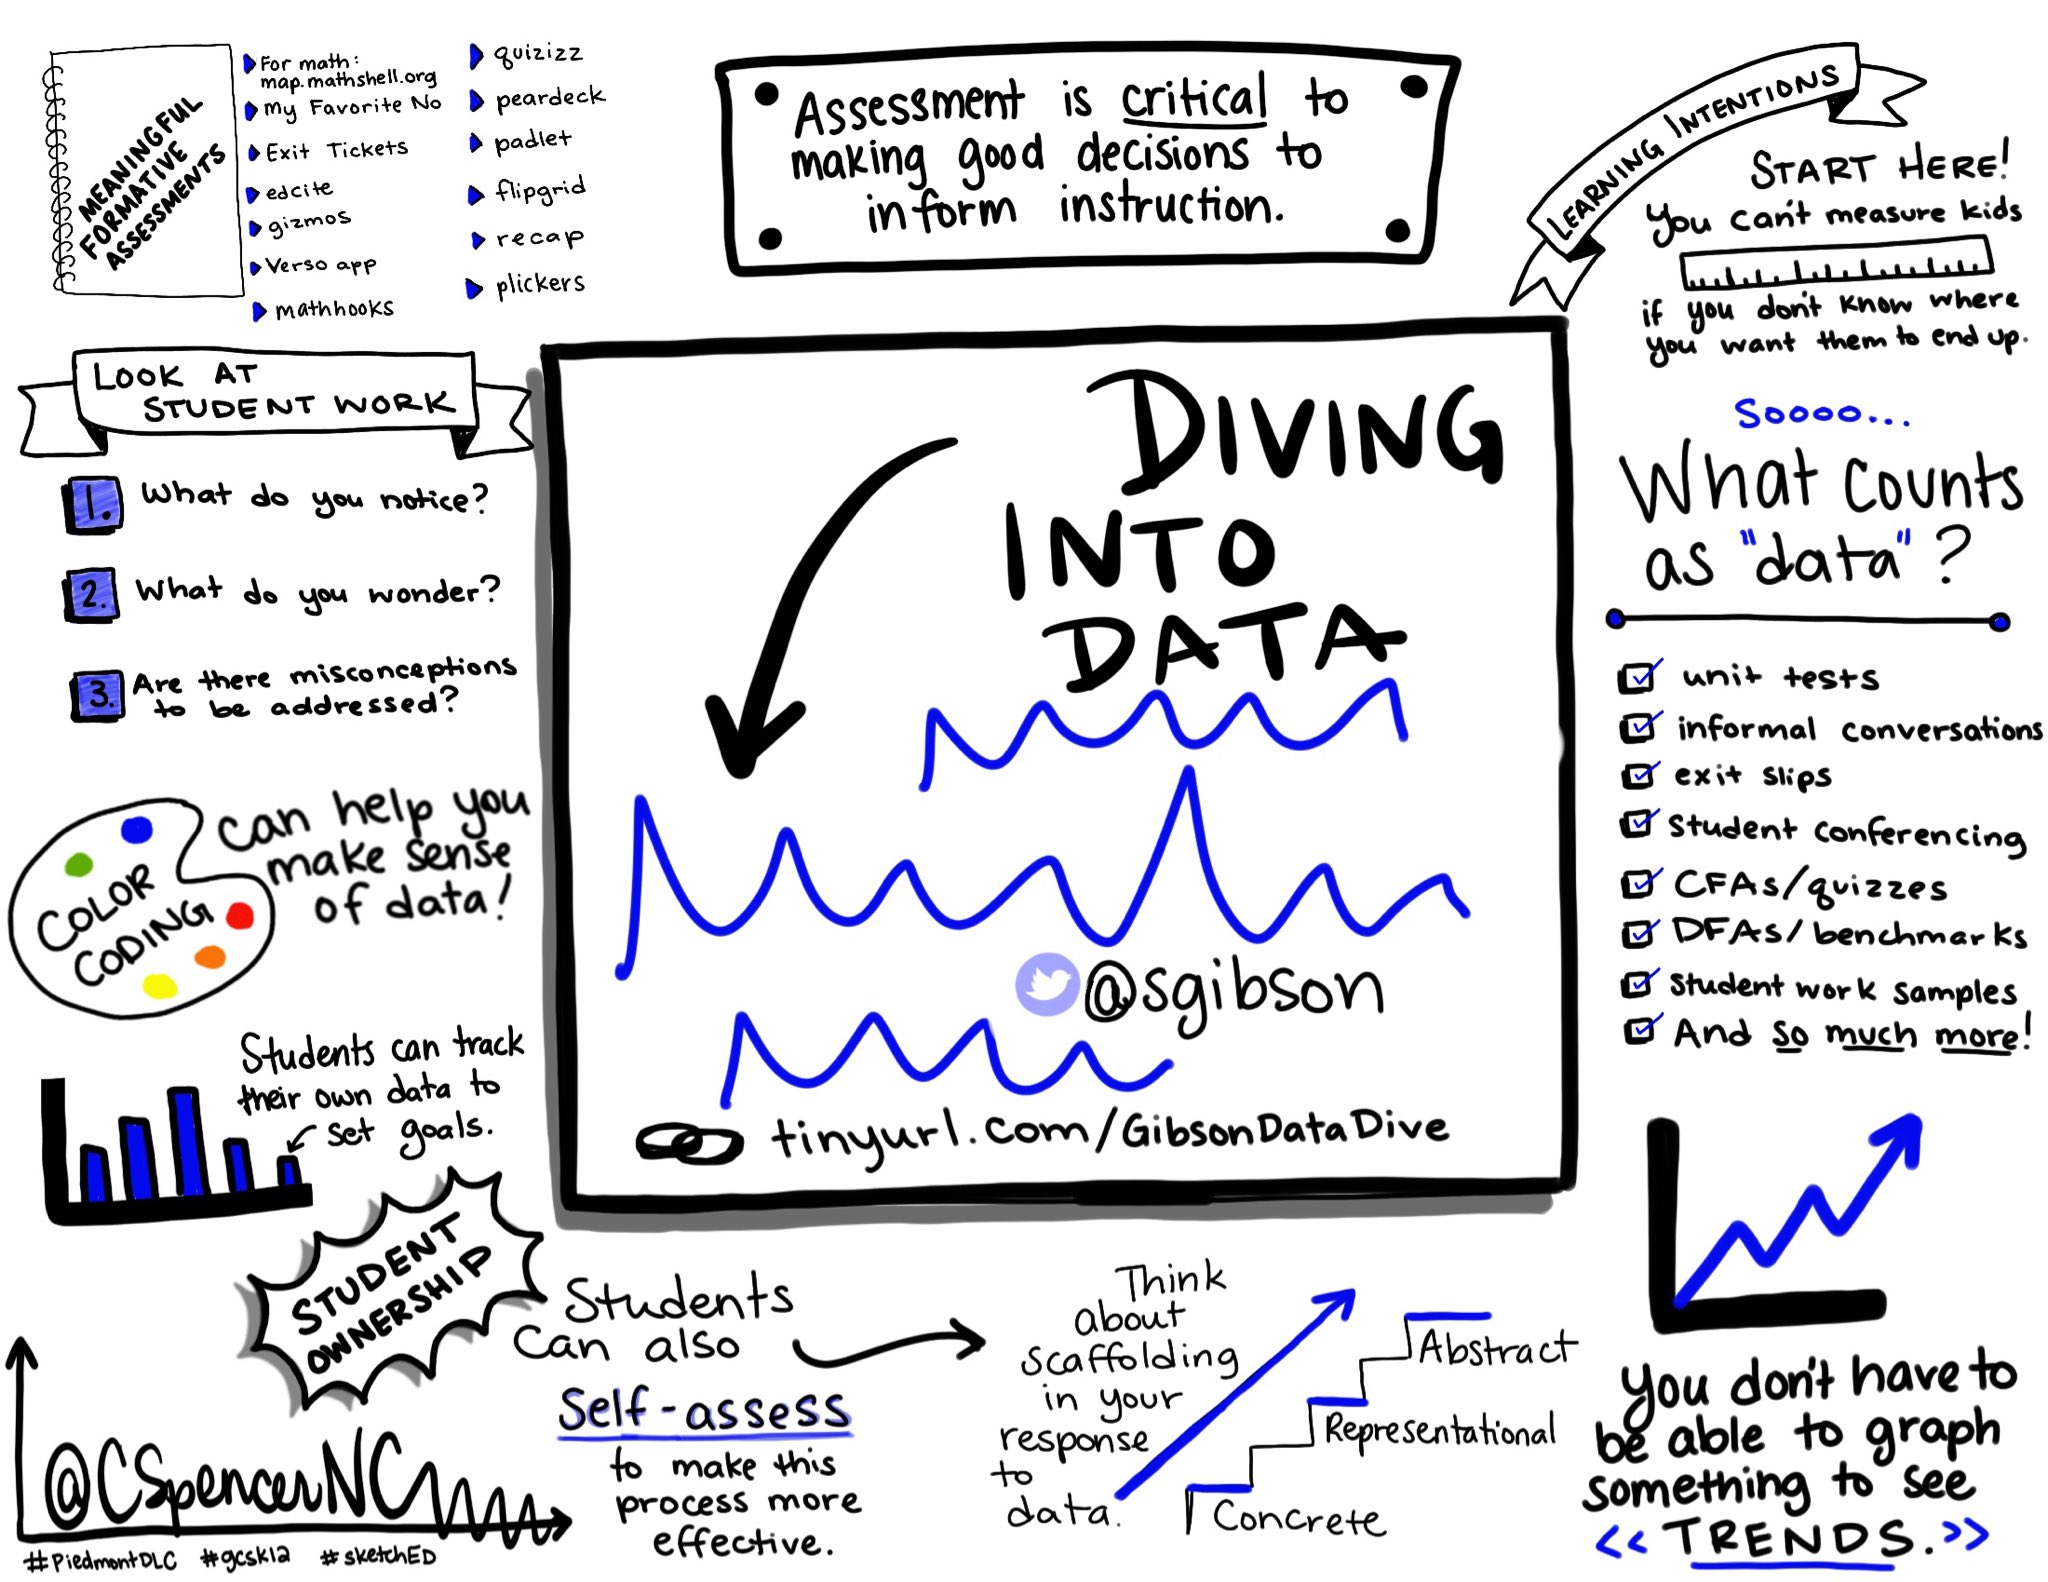 MEANINGFUL
FORMATIVE
ASSESSMENTS
For math:
map.mathshell.org
My Favorite No
Exit Tickets
edcite
gizmos
Verso app
mathhooks
quizizz
peardeck
padlet
flipgrid
recap
plickers
Assessment is critical to
making good decisions to
inform instruction.
LEARNING INTENTIONS
START HERE!
You can't measure kids
if you don't know where
you want them to end up.
Soooo...
What counts
as "data"?
unit tests
informal conversations
exit slips
student conferencing
CFAs/quizzes
DFAs/benchmarks
student work samples
And so much more!
LOOK AT
STUDENT WORK
1. What do you notice?
2. What do you wonder?
3. Are there misconceptions
to be addressed?
COLOR
CODING
can help you
make sense
of data!
DIVING
INTO
DATA
@sgibson
tinyurl.com/GibsonDataDive
Students can track
their own data to
set goals.
STUDENT
OWNERSHIP
Students
can also
Self-assess
to make this
process more
effective.
Think
about
scaffolding
in your
response
to
data.
Abstract
Representational
Concrete
You don't have to
be able to graph
something to see
<< TRENDS. >>
@CSpencerNC
#PiedmontDLC #gcsk12 #sketchED